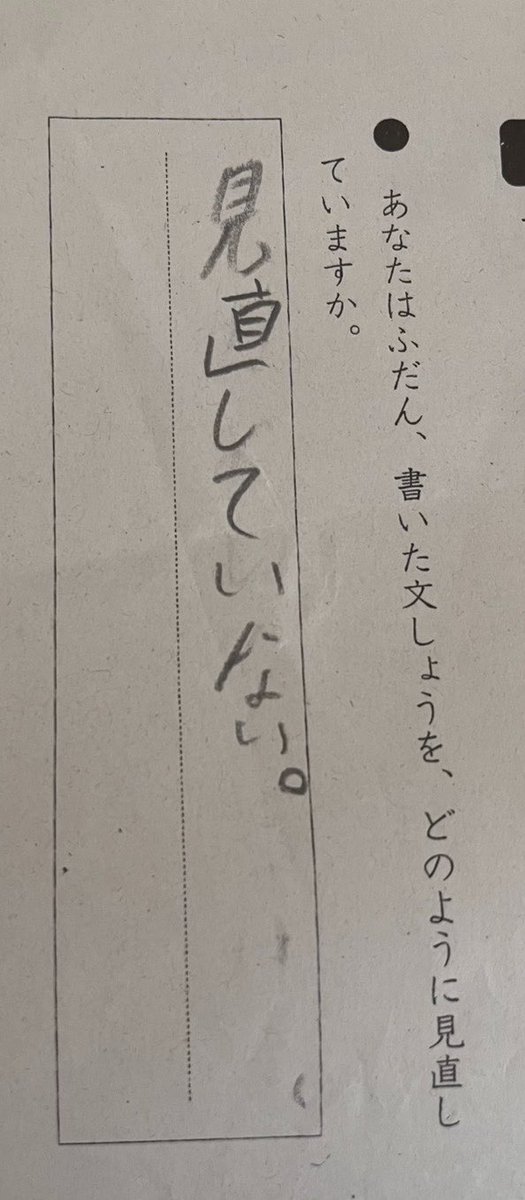 ●あなたはふだん、書いた文しょうを、どのように見直し
ていますか。
見直していない。